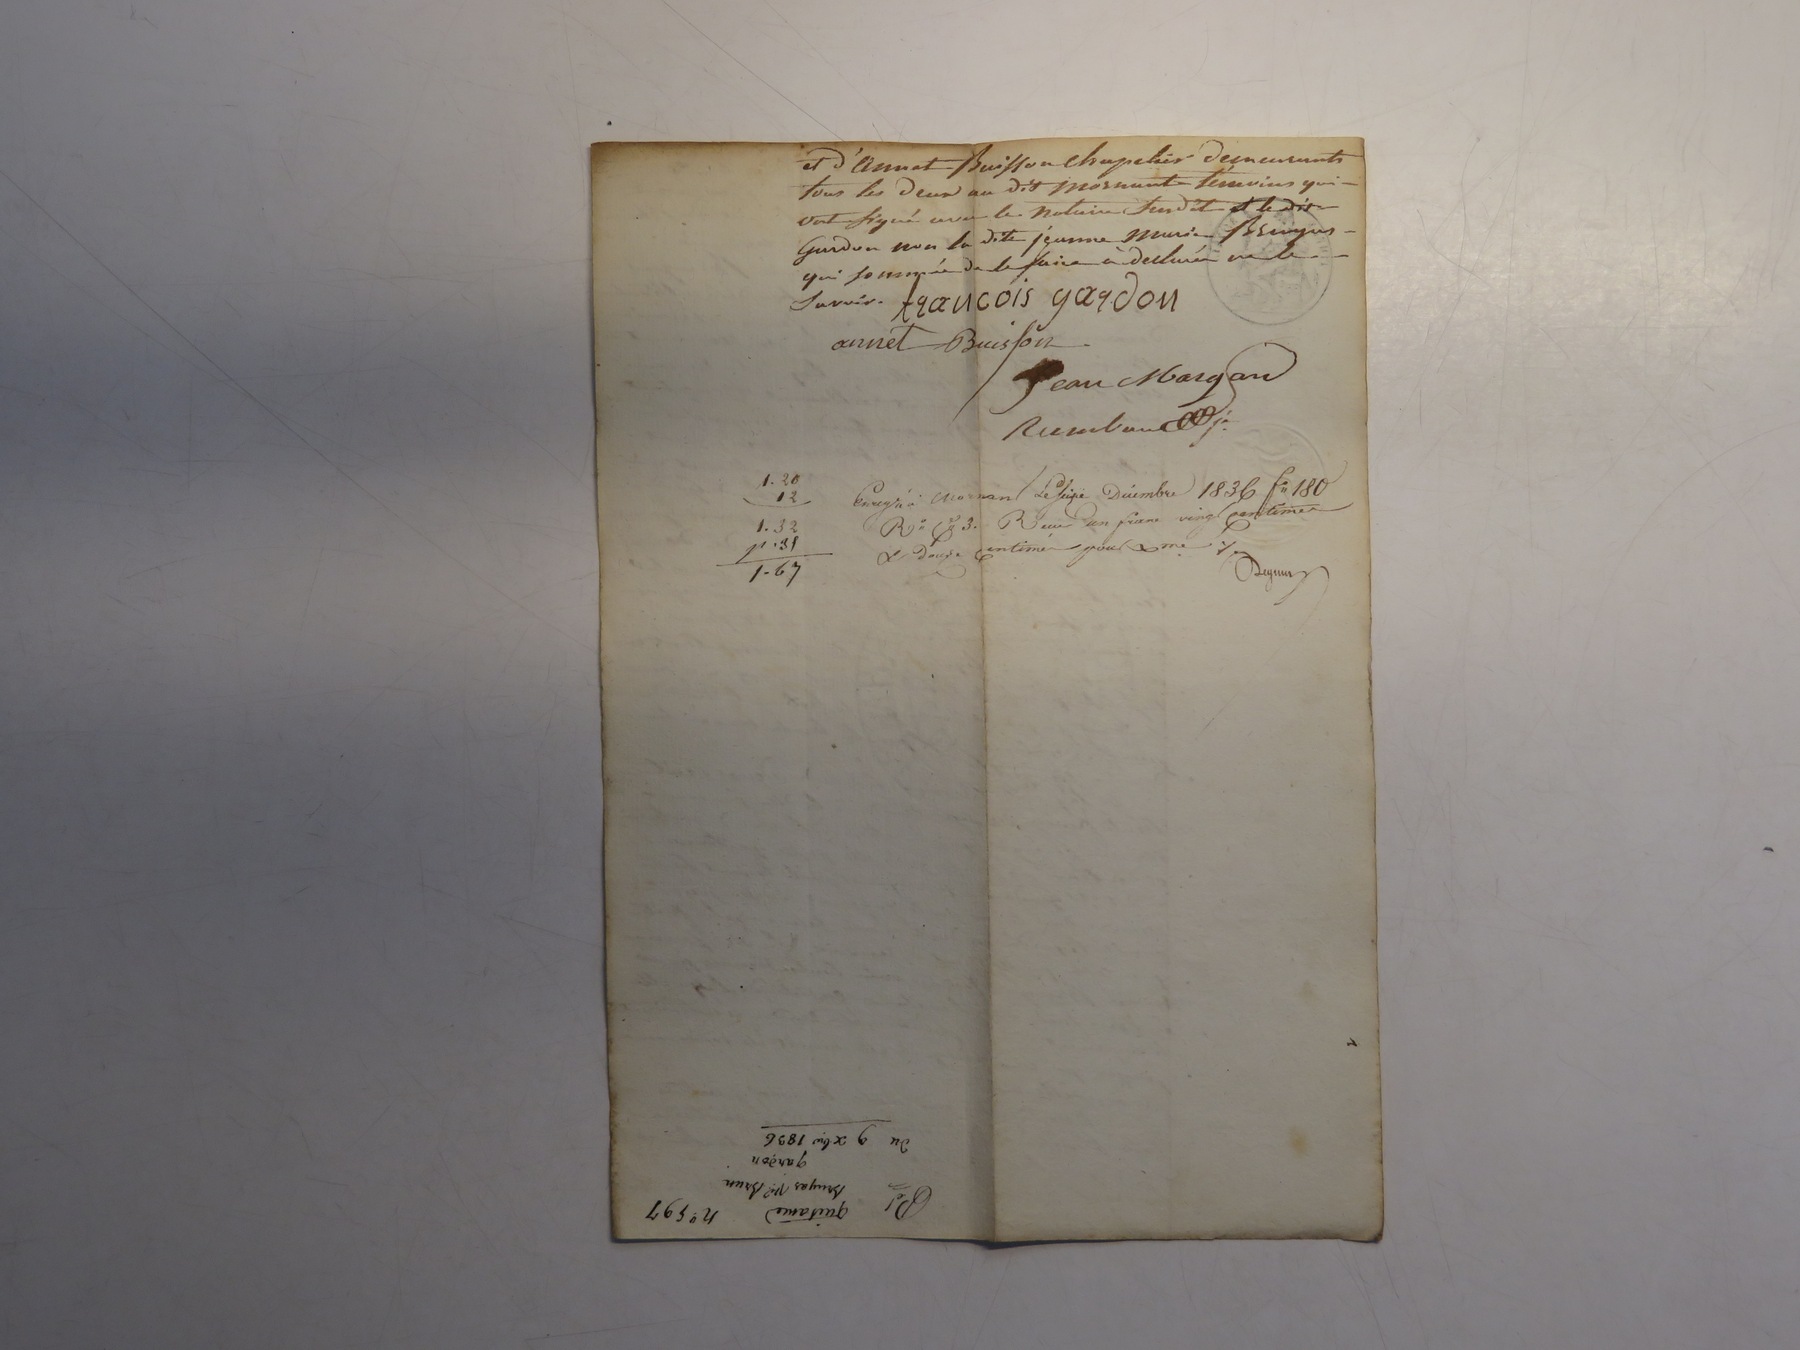 et d'annet Buisson chapelier demeurants
tous les deux au dit mornant témoins qui
ont signé avec le notaire susdit et le dit
Gardon non la dite jeanne marie Bruyas
qui sommée de le faire a déclaré ne le
savoir. françois gardon
annet Buisson
Jean Margand
j.e
1.20
12
1.32
1.67
Enreg.é à mornant le seize Décembre 1836 f.o 180
R.o C.e 3. Reçu un franc vingt centimes
& douze centimes pour x.me
n.o 597
quitance
Bruyas V.e Brun
gardon
du 9 xbre 1836